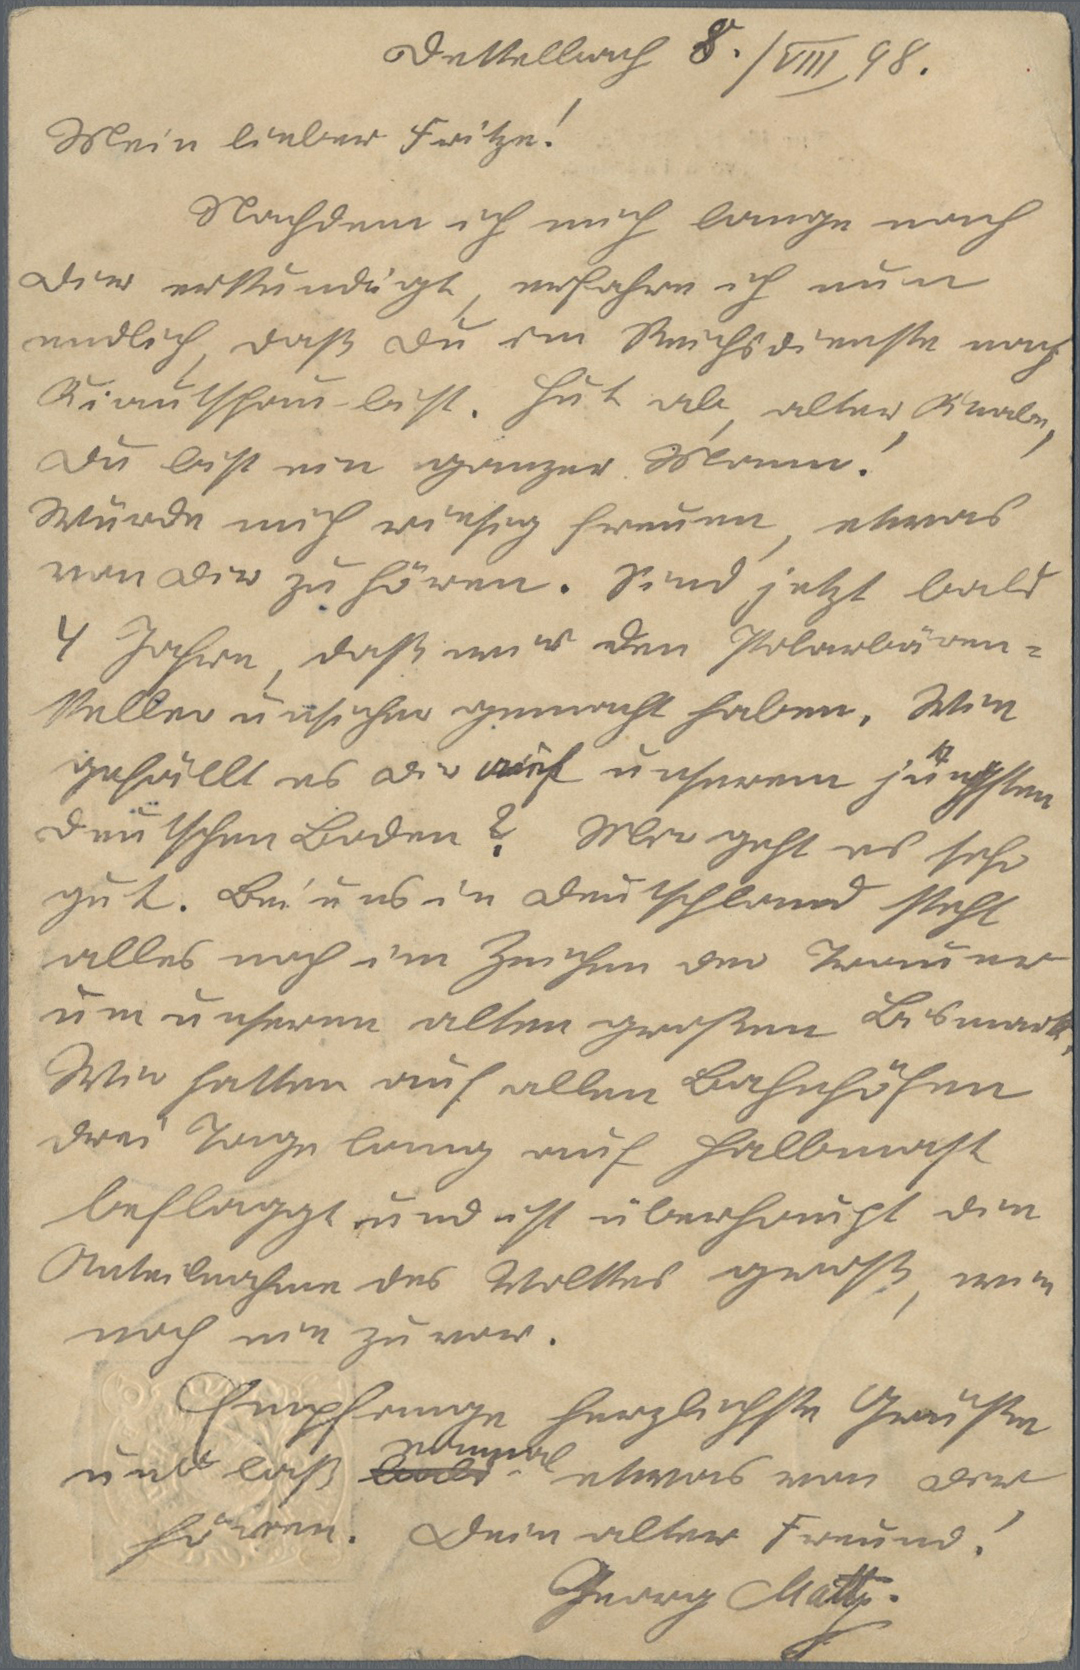 Dettelbach 8./VIII 98.
Mein lieber Fritze!
Nachdem ich mich lange nach
Dir erkundigt, erfahre ich nun
endlich, daß Du im Reichsdienste nach
Kiautschau bist. Hut ab, alter Knabe,
Du bist ein ganzer Mann!
Würde mich riesig freuen, etwas
von Dir zu hören. Sind jetzt bald
4 Jahre, daß wir den Polarbären=
keller unsicher gemacht haben. Wie
gefällt es Dir auf unserem jüngsten
deutschen Boden? Mir geht es sehr
gut. Bei uns in Deutschland steht
alles noch im Zeichen der Trauer
um unseren alten großen Bismark.
Wir hatten auf allen Bahnhöfen
drei Tage lang auf Halbmast
beflaggt und ist überhaupt die
Anteilnahme des Volkes groß, wie
noch nie zuvor.
Empfange herzlichste Grüße
und laß einmal etwas von Dir
hören. Dein alter Freund!
Georg